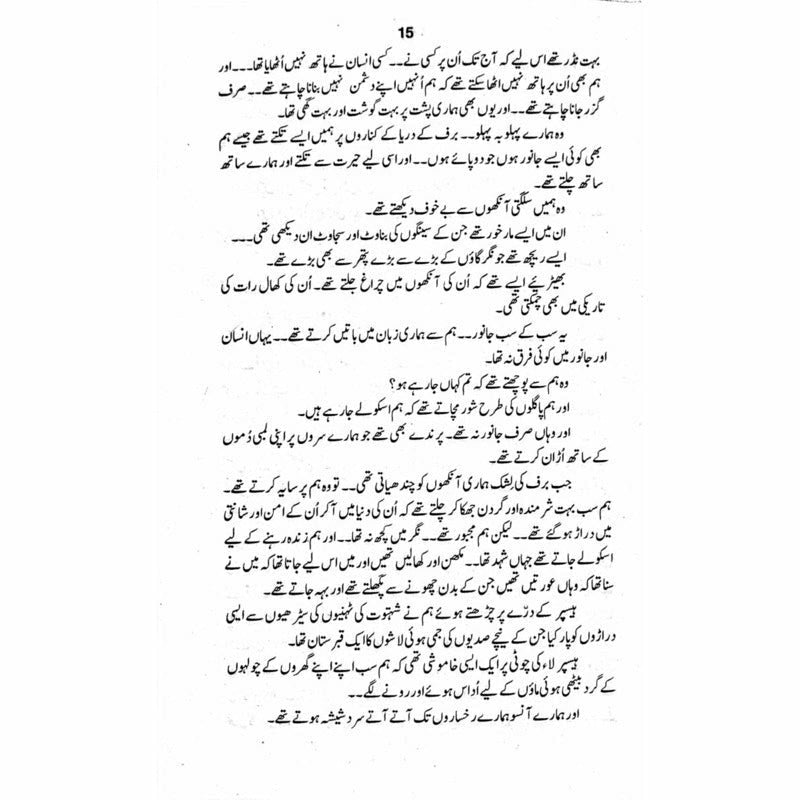 15
بہت نڈر تھے اس لیے کہ آج تک اُن پر کسی نے۔۔ کسی انسان نے ہاتھ نہیں اُٹھایا تھا۔۔۔ اور
ہم بھی اُن پر ہاتھ نہیں اٹھا سکتے تھے کہ ہم اُنہیں اپنے دشمن نہیں بنانا چاہتے تھے۔۔ صرف
گزر جانا چاہتے تھے۔۔ اور یوں بھی ہماری پشت پر بہت گوشت اور بہت گھی تھا۔
وہ ہمارے پہلو بہ پہلو۔۔ برف کے دریا کے کناروں پر ہمیں ایسے تکتے تھے جیسے ہم
بھی کوئی ایسے جانور ہوں جو دوپائے ہوں۔۔ اور اسی لیے حیرت سے تکتے اور ہمارے ساتھ
ساتھ چلتے تھے۔
وہ ہمیں سُلگتی آنکھوں سے بے خوف دیکھتے تھے۔
ان میں ایسے مارخور تھے جن کے سینگوں کی بناوٹ اور سجاوٹ ان دیکھی تھی۔۔۔
ایسے ریچھ تھے جو نگر گاؤں کے بڑے سے بڑے پتھر سے بھی بڑے تھے۔
بھیڑیئے ایسے تھے کہ اُن کی آنکھوں میں چراغ جلتے تھے۔ اُن کی کھال رات کی
تاریکی میں بھی چمکتی تھی۔
یہ سب کے سب جانور۔۔ ہم سے ہماری زبان میں باتیں کرتے تھے۔۔ یہاں انسان
اور جانور میں کوئی فرق نہ تھا۔
وہ ہم سے پوچھتے تھے کہ تم کہاں جا رہے ہو؟
اور ہم پاگلوں کی طرح شور مچاتے تھے کہ ہم اسکولے جا رہے ہیں۔
اور وہاں صرف جانور نہ تھے۔ پرندے بھی تھے جو ہمارے سروں پر اپنی لمبی دُموں
کے ساتھ اُڑان کرتے تھے۔
جب برف کی لِشک ہماری آنکھوں کو چندھیاتی تھی۔۔ تو وہ ہم پر سایہ کرتے تھے۔
ہم سب بہت شرمندہ اور گردن جھکا کر چلتے تھے کہ اُن کی دنیا میں آ کر اُن کے امن اور شانتی
میں دراڑ ہو گئے تھے۔۔ لیکن ہم مجبور تھے۔۔ نگر میں کچھ نہ تھا۔۔ اور ہم زندہ رہنے کے لیے
اسکولے جاتے تھے جہاں شہد تھا۔۔ مکھن اور کھالیں تھیں اور میں اس لیے جاتا تھا کہ میں نے
سنا تھا کہ وہاں عورتیں تھیں جن کے بدن چھونے سے پگھلتے تھے اور بہہ جاتے تھے۔
ہیسپر کے درّے پر چڑھتے ہوئے ہم نے شہتوت کی ٹہنیوں کی سیڑھیوں سے ایسی
دراڑوں کو پار کیا جن کے نیچے صدیوں کی جمی ہوئی لاشوں کا ایک قبرستان تھا۔
ہیسپر لاء کی چوٹی پر ایک ایسی خاموشی تھی کہ ہم سب اپنے اپنے گھروں کے چولہوں
کے گرد بیٹھی ہوئی ماؤں کے لیے اُداس ہوئے اور رونے لگے۔۔
اور ہمارے آنسو ہمارے رخساروں تک آتے آتے سرد شیشہ ہوتے تھے۔